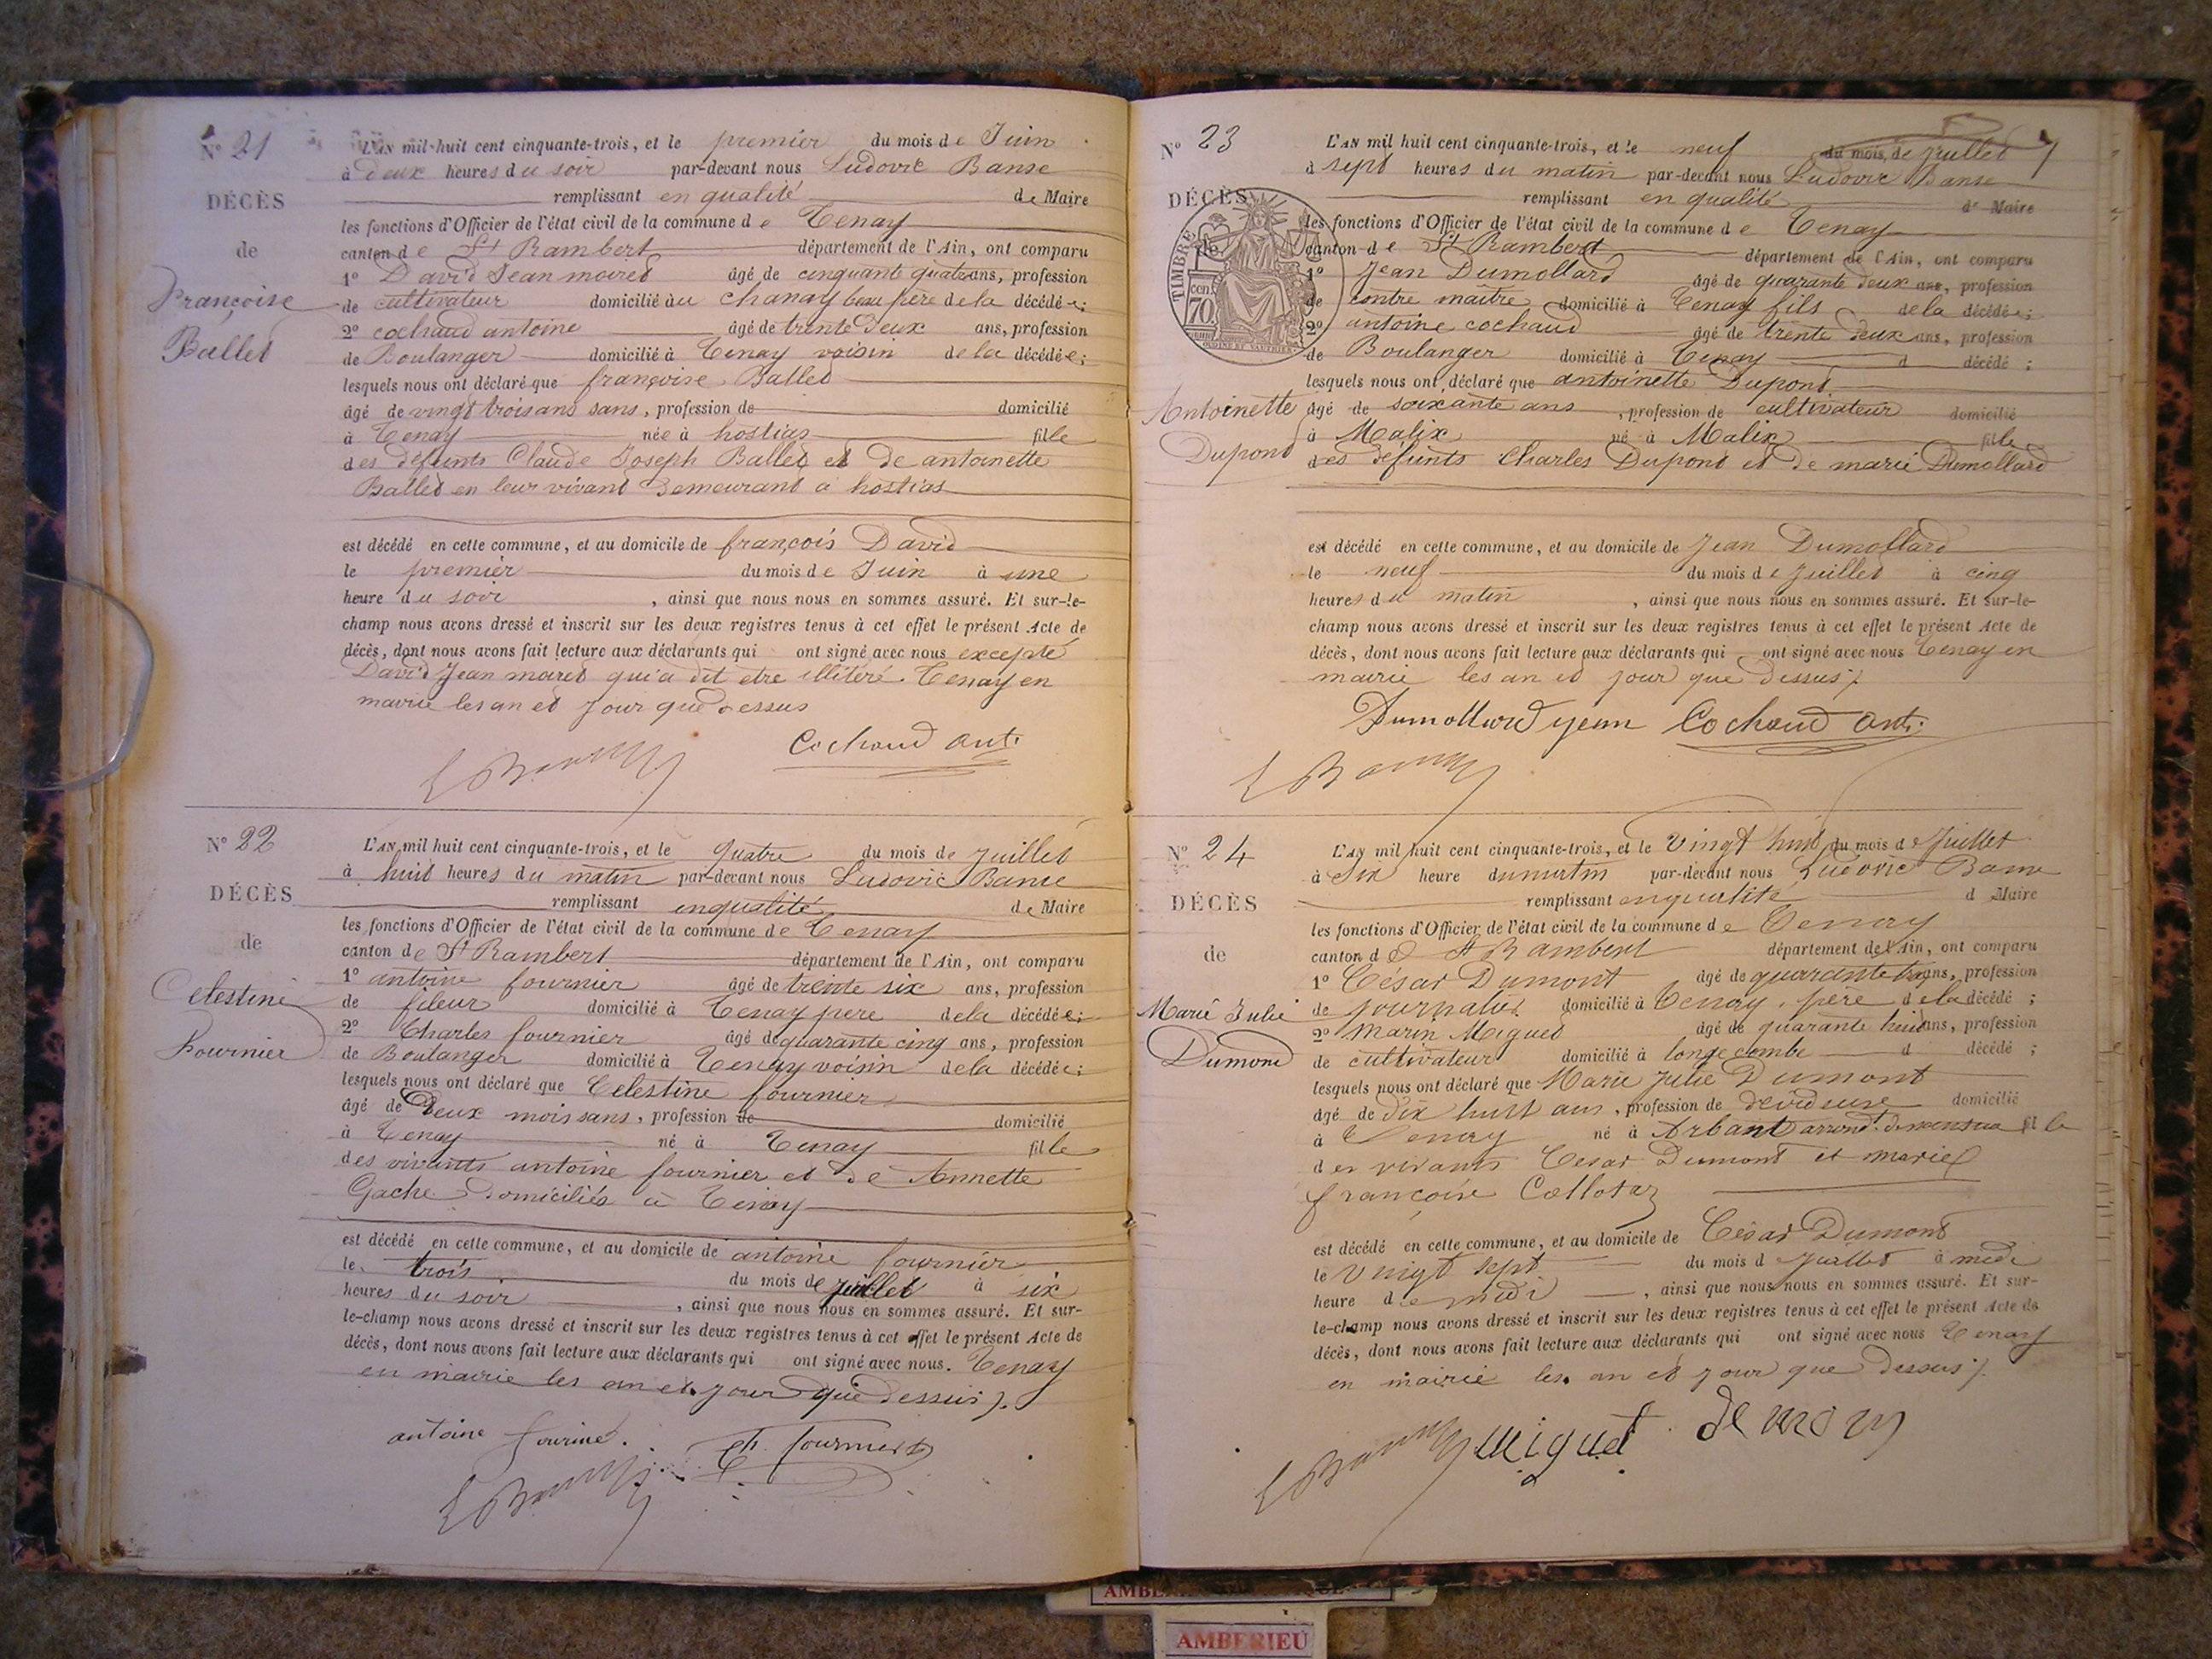 N° 21
DÉCÈS
de
Françoise
Ballet
L'AN mil-huit cent cinquante-trois, et le premier du mois de Juin
à deux heures du soir par-devant nous Ludovic Banse
remplissant en qualité de Maire
les fonctions d'Officier de l'état civil de la commune de Tenay
canton de St Rambert département de l'Ain, ont comparu
1° David Jean maret âgé de cinquante quatre ans, profession
de cultivateur domicilié au chanay beau père de la décédée;
2° cochaud antoine âgé de trente deux ans, profession
de Boulanger domicilié à Tenay voisin de la décédée;
lesquels nous ont déclaré que françoise Ballet
âgé de vingt trois ans sans, profession de domicilié
à Tenay née à hostias fille
des défunts Claude Joseph Ballet et de antoinette
Ballet en leur vivant Demeurant à hostias
est décédé en cette commune, et au domicile de françois David
le premier du mois de Juin à une
heure du soir, ainsi que nous nous en sommes assuré. Et sur-le-
champ nous avons dressé et inscrit sur les deux registres tenus à cet effet le présent Acte de
décès, dont nous avons fait lecture aux déclarants qui ont signé avec nous excepté
David Jean maret qui a dit etre illitéré. Tenay en
mairie les an et jour que dessus
Cochaud ant.
N° 22
DÉCÈS
de
Celestine
Fournier
L'AN mil huit cent cinquante-trois, et le quatre du mois de juillet
à huit heures du matin par-devant nous Ludovic Banse
remplissant en qualité de Maire
les fonctions d'Officier de l'état civil de la commune de Tenay
canton de St Rambert département de l'Ain, ont comparu
1° antoine fournier âgé de trente six ans, profession
de fileur domicilié à Tenay père de la décédée;
2° Charles fournier âgé de quarante cinq ans, profession
de Boulanger domicilié à Tenay voisin de la décédée;
lesquels nous ont déclaré que Celestine fournier
âgé de Deux mois sans, profession de domicilié
à Tenay né à Tenay fille
des vivants antoine fournier et de Annette
Gache Domiciliés à Tenay
est décédé en cette commune, et au domicile de antoine fournier
le trois du mois de juillet à six
heures du soir, ainsi que nous nous en sommes assuré. Et sur-
le-champ nous avons dressé et inscrit sur les deux registres tenus à cet effet le présent Acte de
décès, dont nous avons fait lecture aux déclarants qui ont signé avec nous. Tenay
en mairie les an et jour que dessus
antoine fourine.
Ch. fournier
N° 23
DÉCÈS
de
TIMBRE
70
Antoinette
Dupond
L'AN mil huit cent cinquante-trois, et le neuf du mois de juillet
à sept heures du matin par-devant nous Ludovic Banse
remplissant en qualité de Maire
les fonctions d'Officier de l'état civil de la commune de Tenay
canton de St Rambert département de l'Ain, ont comparu
1° Jean Dumollard âgé de quarante deux ans, profession
de contre maître domicilié à Tenay fils de la décédée;
2° antoine cochaud âgé de trente deux ans, profession
de Boulanger domicilié à Tenay d décédé;
lesquels nous ont déclaré que antoinette Dupond
âgé de soixante ans, profession de cultivateur domicilié
à Malix né à Malix fille
des défunts Charles Dupond et de marie Dumollard
est décédé en cette commune, et au domicile de Jean Dumollard
le neuf du mois de juillet à cinq
heures du matin, ainsi que nous nous en sommes assuré. Et sur-le-
champ nous avons dressé et inscrit sur les deux registres tenus à cet effet le présent Acte de
décès, dont nous avons fait lecture aux déclarants qui ont signé avec nous Tenay en
mairie les an et jour que dessus
Dumollard jean Cochaud ant.
N° 24
DÉCÈS
de
Marie Julie
Dumond
L'AN mil huit cent cinquante-trois, et le vingt huit du mois de juillet
à Six heure du matin par-devant nous Ludovic Banse
remplissant en qualité d Maire
les fonctions d'Officier de l'état civil de la commune de Tenay
canton d St Rambert département de l'Ain, ont comparu
1° César Dumont âgé de quarante trois ans, profession
de journalier domicilié à Tenay, père de la décédé;
2° Marin Miguet âgé de quarante huit ans, profession
de cultivateur domicilié à longecombe d décédé;
lesquels nous ont déclaré que Marie Julie Dumont
âgé de dix huit ans, profession de dévideuse domicilié
à Tenay né à Arbant arrond. de nantua fille
des vivants Cesar Dumont et marie
françoise Collotaz
est décédé en cette commune, et au domicile de César Dumont
le vingt sept du mois d juillet à midi
heure de midi, ainsi que nous nous en sommes assuré. Et sur-
le-champ nous avons dressé et inscrit sur les deux registres tenus à cet effet le présent Acte de
décès, dont nous avons fait lecture aux déclarants qui ont signé avec nous Tenay
en mairie les an et jour que dessus
Miguet
AMBERIEU